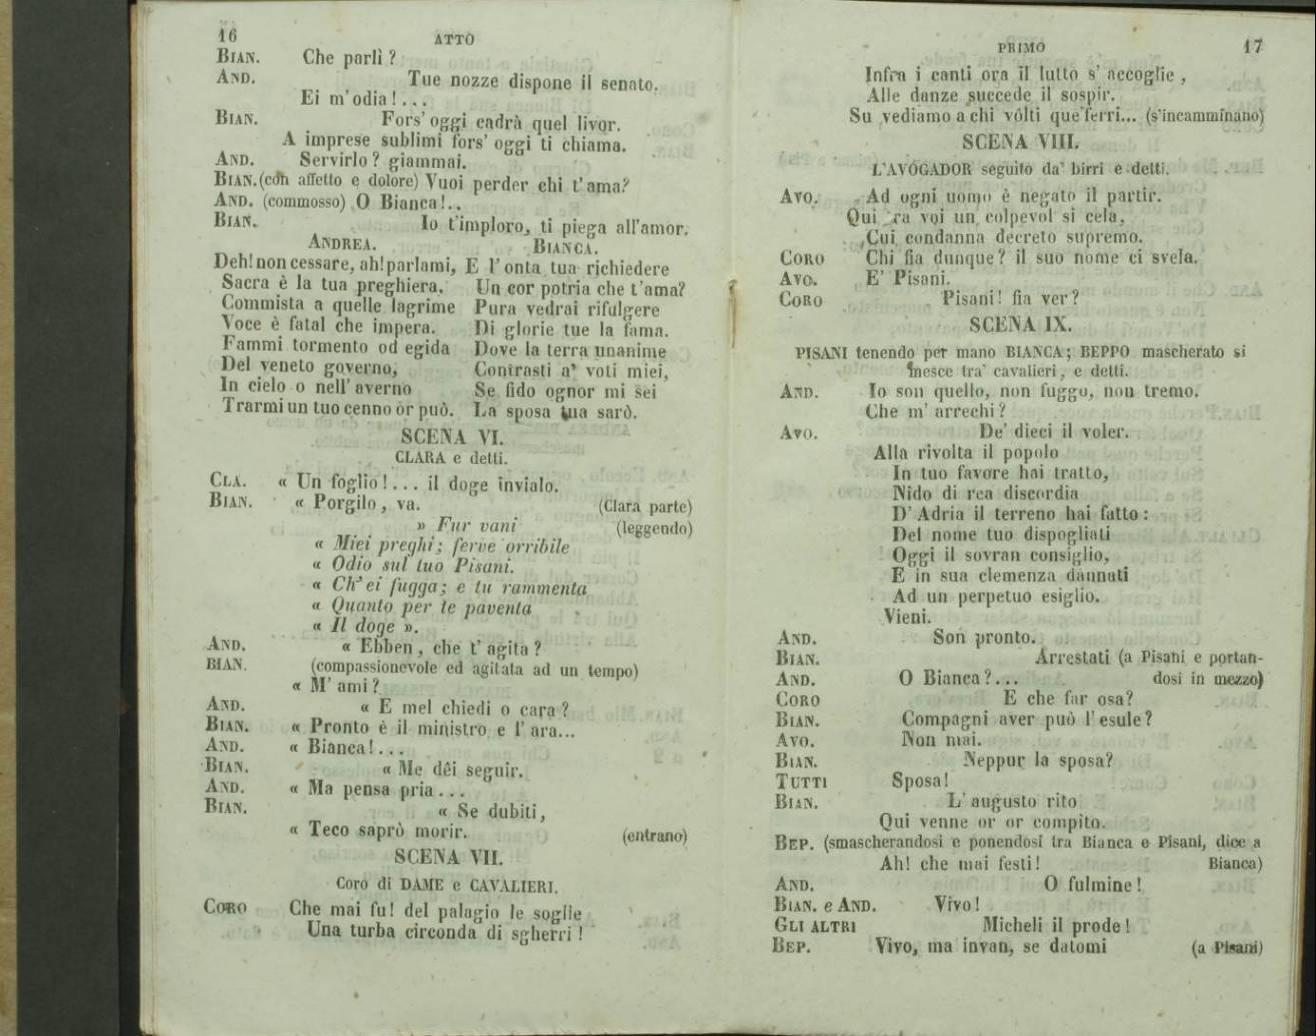 16 ATTO
BIAN. Che parli ?
AND. Tue nozze dispone il senato.
Ei m'odia ! . . .
BIAN. Fors' oggi cadrà quel livor.
A imprese sublimi fors' oggi ti chiama.
AND. Servirlo ? giammai.
BIAN. (con affetto e dolore) Vuoi perder chi t' ama?
AND. (commosso) O Bianca ! . .
BIAN. Io t'imploro, ti piega all'amor.
ANDREA.
Deh! non cessare, ah! parlami,
Sacra è la tua preghiera,
Commista a quelle lagrime
Voce è fatal che impera.
Fammi tormento od egida
Del veneto governo,
In cielo o nell' averno
Trarmi un tuo cenno or può.
BIANCA.
E l' onta tua richiedere
Un cor potria che t'ama?
Pura vedrai rifulgere
Di glorie tue la fama.
Dove la terra unanime
Contrasti a' voti miei,
Se fido ognor mi sei
La sposa tua sarò.
SCENA VI.
CLARA e detti.
CLA. « Un foglio ! . . . il doge invialo.
BIAN. « Porgilo , va. (Clara parte)
» Fur vani (leggendo)
« Miei preghi ; ferve orribile
« Odio sul tuo Pisani.
« Ch' ei fugga ; e tu rammenta
« Quanto per te paventa
« Il doge ».
AND. « Ebben , che t' agita ?
BIAN. (compassionevole ed agitata ad un tempo)
« M' ami ?
AND. « E mel chiedi o cara ?
BIAN. « Pronto è il ministro e l' ara...
AND. « Bianca ! . . .
BIAN. « Me dêi seguir.
AND. « Ma pensa pria . . .
BIAN. « Se dubiti,
« Teco saprò morir. (entrano)
SCENA VII.
Coro di DAME e CAVALIERI.
CORO Che mai fu! del palagio le soglie
Una turba circonda di sgherri !
PRIMO 17
Infra i canti ora il lutto s' accoglie ,
Alle danze succede il sospir.
Su vediamo a chi vôlti que' ferri... (s'incamminano)
SCENA VIII.
L'AVOGADOR seguito da' birri e detti.
AVO. Ad ogni uomo è negato il partir.
Qui fra voi un colpevol si cela,
Cui condanna decreto supremo.
CORO Chi fia dunque? il suo nome ci svela.
AVO. E' Pisani.
CORO Pisani! fia ver ?
SCENA IX.
PISANI tenendo per mano BIANCA ; BEPPO mascherato si
mesce tra' cavalieri, e detti.
AND. Io son quello, non fuggo, non tremo.
Che m' arrechi ?
AVO. De' dieci il voler.
Alla rivolta il popolo
In tuo favore hai tratto,
Nido di rea discordia
D' Adria il terreno hai fatto :
Del nome tuo dispogliati
Oggi il sovran consiglio,
E in sua clemenza dannati
Ad un perpetuo esiglio.
Vieni.
AND. Son pronto.
BIAN. Arrestati (a Pisani e portan-
AND. O Bianca ? . . . dosi in mezzo)
CORO E che far osa?
BIAN. Compagni aver può l' esule ?
AVO. Non mai.
BIAN. Neppur la sposa?
TUTTI Sposa !
BIAN. L' augusto rito
Qui venne or or compito.
BEP. (smascherandosi e ponendosi tra Bianca e Pisani, dice a
Ah! che mai festi ! Bianca)
AND. O fulmine !
BIAN. e AND. Vivo !
GLI ALTRI Micheli il prode !
BEP. Vivo, ma invan, se datomi (a Pisani)